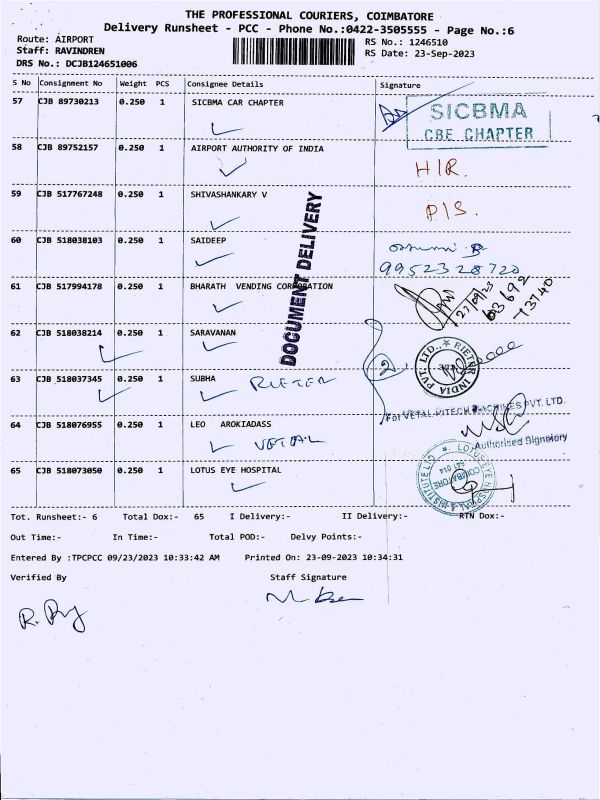 THE PROFESSIONAL COURIERS, COIMBATORE
Delivery Runsheet - PCC - Phone No.:0422-3505555 - Page No.:6
Route: AIRPORT
RS No.: 1246510
Staff: RAVINDREN
RS Date: 23-Sep-2023
DRS No.: DCJB124651006
S No Consignment No Weight PCS Consignee Details Signature
57 CJB 89730213 0.250 1 SICBMA CAR CHAPTER
SICBMA
CBE CHAPTER
58 CJB 89752157 0.250 1 AIRPORT AUTHORITY OF INDIA
H/R.
59 CJB 517767248 0.250 1 SHIVASHANKARY V
P/S.
60 CJB 518038103 0.250 1 SAIDEEP
9952328720
61 CJB 517994178 0.250 1 BHARATH VENDING CORPORATION
23/09/23
63692
73740
DOCUMENT DELIVERY
62 CJB 518038214 0.250 1 SARAVANAN
2
RIETER INDIA PVT. LTD.
63 CJB 518037345 0.250 1 SUBHA RIETER
64 CJB 518076955 0.250 1 LEO AROKIADASS
VETAL
For VETAL HITECH MACHINES PVT. LTD.
Authorised Signatory
65 CJB 518073050 0.250 1 LOTUS EYE HOSPITAL
LOTUS EYE HOSPITAL & INSTITUTE LTD
COIMBATORE
641 014
Tot. Runsheet:- 6 Total Dox:- 65 I Delivery:- II Delivery:- RTN Dox:-
Out Time:- In Time:- Total POD:- Delvy Points:-
Entered By :TPCPCC 09/23/2023 10:33:42 AM Printed On: 23-09-2023 10:34:31
Verified By Staff Signature